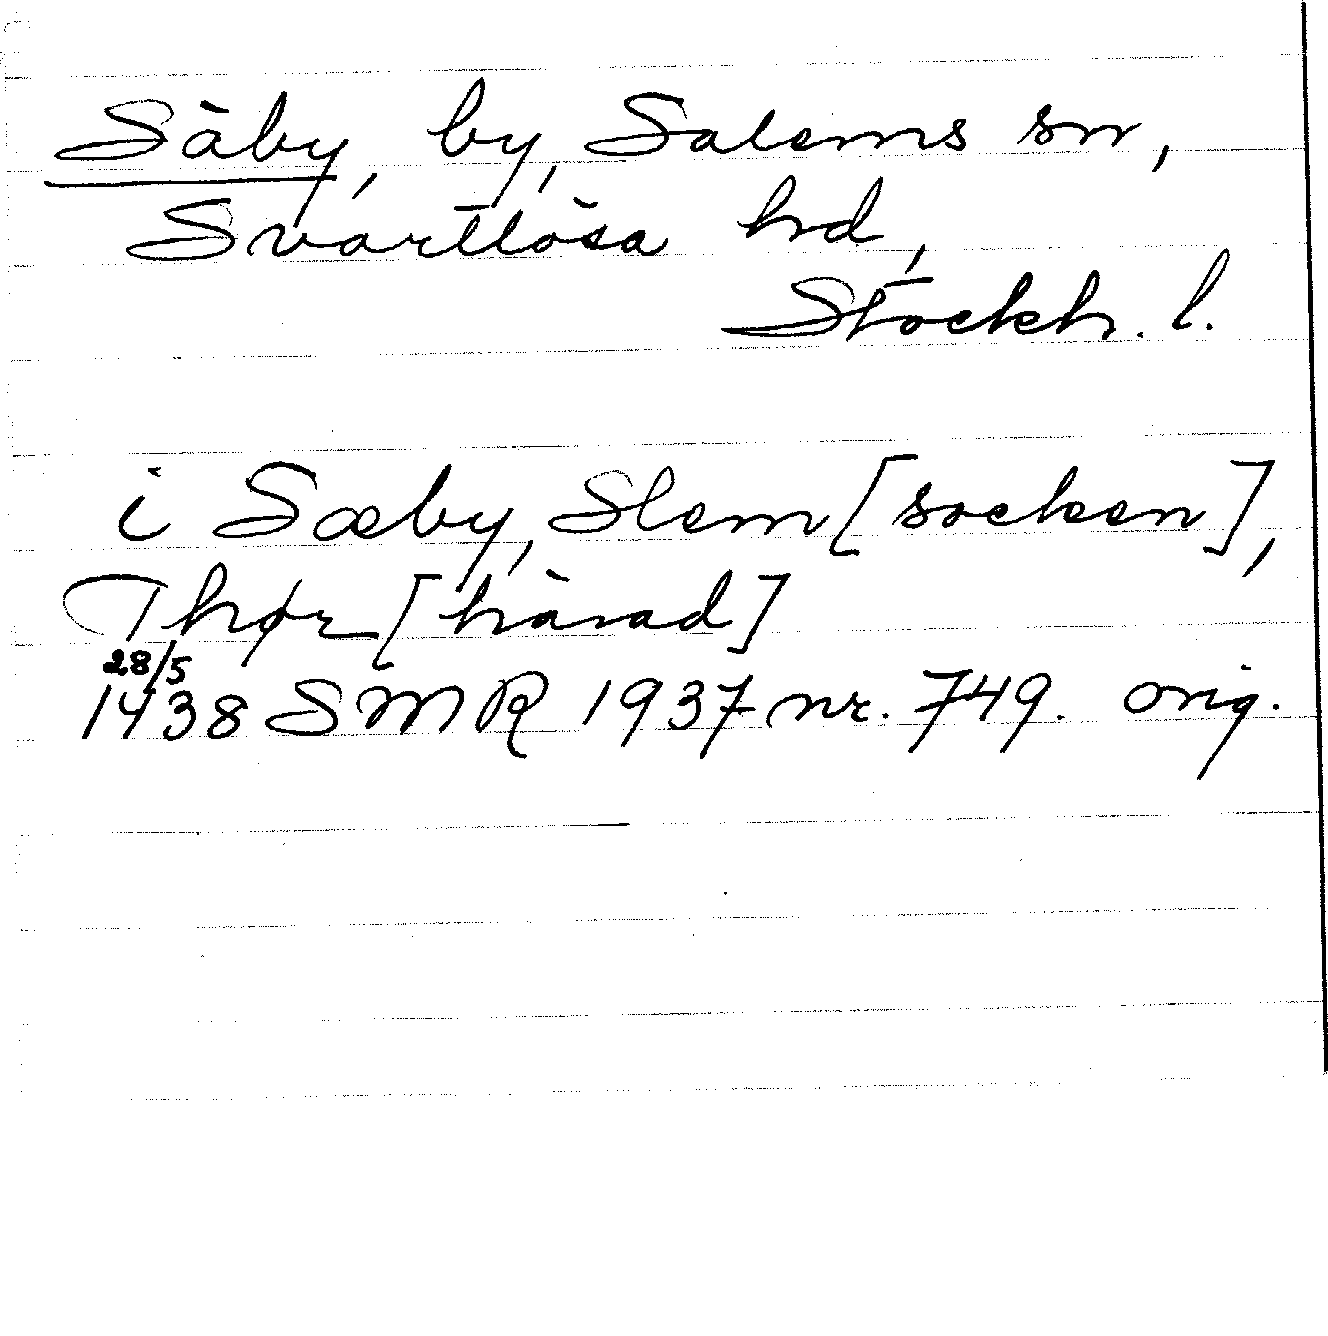 Säby, by, Salems sn,
Svartlösa hd,
Stockh. l.
i Sæby, Slem [socken],
Thør [härad]
28/5
1438 SMR 1937 nr. 749. orig.